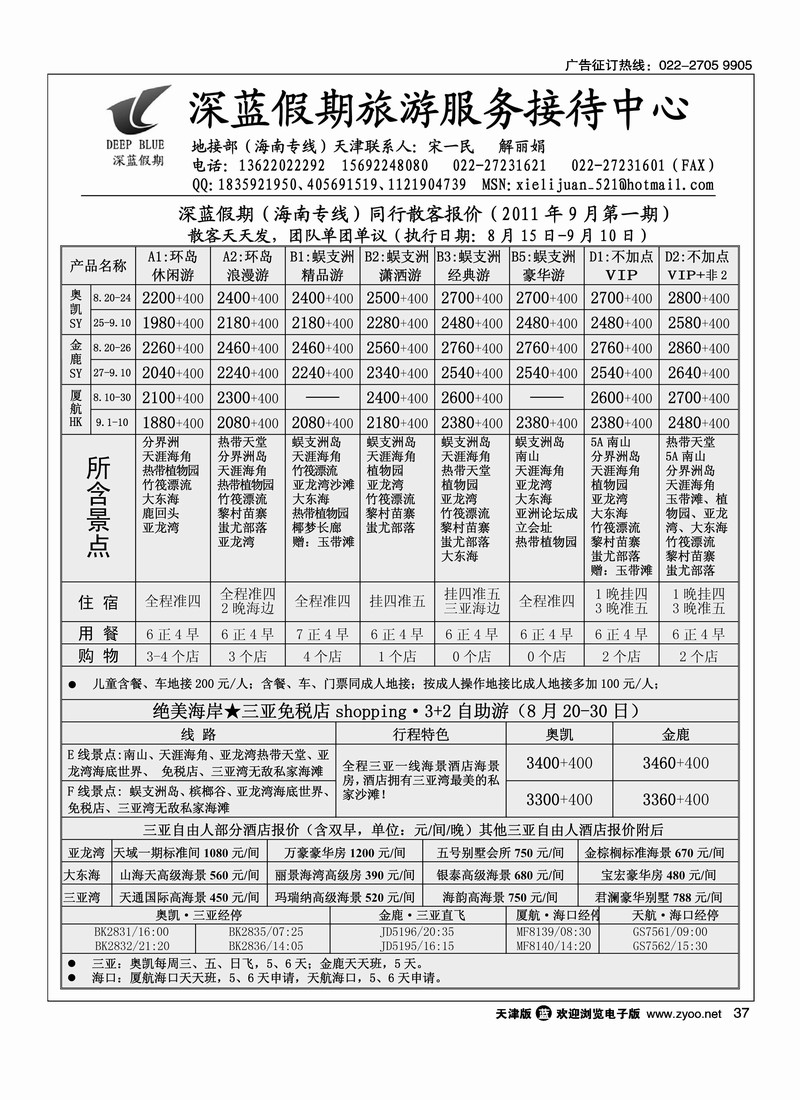 广告征订热线：022-2705 9905
深蓝假期旅游服务接待中心
DEEP BLUE
深蓝假期
地接部（海南专线）天津联系人：宋一民 解丽娟
电话：13622022292 15692248080 022-27231621 022-27231601（FAX）
QQ:1835921950、405691519、1121904739 MSN:xielijuan_521@hotmail.com
深蓝假期（海南专线）同行散客报价（2011年9月第一期）
散客天天发，团队单团单议（执行日期：8月15日-9月10日）
产品名称 A1:环岛 A2:环岛 B1:蜈支洲 B2:蜈支洲 B3:蜈支洲 B5:蜈支洲 D1:不加点 D2:不加点
休闲游 浪漫游 精品游 潇洒游 经典游 豪华游 VIP VIP+非2
奥凯SY 8.20-24 2200+400 2400+400 2400+400 2500+400 2700+400 2700+400 2700+400 2800+400
25-9.10 1980+400 2180+400 2180+400 2280+400 2480+400 2480+400 2480+400 2580+400
金鹿SY 8.20-26 2260+400 2460+400 2460+400 2560+400 2760+400 2760+400 2760+400 2860+400
27-9.10 2040+400 2240+400 2240+400 2340+400 2540+400 2540+400 2540+400 2640+400
厦航HK 8.10-30 2100+400 2300+400 —— 2400+400 2600+400 —— 2600+400 2700+400
9.1-10 1880+400 2080+400 2080+400 2180+400 2380+400 2380+400 2380+400 2480+400
所含景点
分界洲
天涯海角
热带植物园
竹筏漂流
大东海
鹿回头
亚龙湾
热带天堂
分界洲岛
天涯海角
热带植物园
竹筏漂流
黎村苗寨
蚩尤部落
亚龙湾
蜈支洲岛
天涯海角
竹筏漂流
亚龙湾沙滩
大东海
热带植物园
椰梦长廊
赠：玉带滩
蜈支洲岛
天涯海角
植物园
亚龙湾
竹筏漂流
黎村苗寨
蚩尤部落
蜈支洲岛
天涯海角
热带天堂
植物园
亚龙湾
竹筏漂流
黎村苗寨
蚩尤部落
大东海
蜈支洲岛
南山
天涯海角
亚龙湾
大东海
亚洲论坛成
立会址
热带植物园
5A南山
分界洲岛
天涯海角
植物园
亚龙湾
大东海
竹筏漂流
黎村苗寨
蚩尤部落
赠：玉带滩
热带天堂
5A南山
分界洲岛
天涯海角
玉带滩、植
物园、亚龙
湾、大东海
竹筏漂流
黎村苗寨
蚩尤部落
住 宿 全程准四 全程准四 2晚海边 全程准四 挂四准五 挂四准五 三亚海边 全程准四 1晚挂四 3晚准五 1晚挂四 3晚准五
用 餐 6正4早 6正4早 7正4早 6正4早 6正4早 6正4早 6正4早 6正4早
购 物 3-4个店 3个店 4个店 1个店 0个店 0个店 2个店 2个店
● 儿童含餐、车地接200元/人；含餐、车、门票同成人地接；按成人操作地接比成人地接多加100元/人；
绝美海岸★三亚免税店shopping·3+2自助游（8月20-30日）
线 路 行程特色 奥凯 金鹿
E线景点:南山、天涯海角、亚龙湾热带天堂、亚
龙湾海底世界、 免税店、三亚湾无敌私家海滩
全程三亚一线海景酒店海景
房，酒店拥有三亚湾最美的私
家沙滩！
3400+400 3460+400
F线景点: 蜈支洲岛、槟榔谷、亚龙湾海底世界、
免税店、三亚湾无敌私家海滩
3300+400 3360+400
三亚自由人部分酒店报价（含双早，单位：元/间/晚）其他三亚自由人酒店报价附后
亚龙湾 天域一期标准间1080元/间 万豪豪华房1200元/间 五号别墅会所750元/间 金棕榈标准海景670元/间
大东海 山海天高级海景560元/间 丽景海湾高级房390元/间 银泰高级海景680元/间 宝宏豪华房480元/间
三亚湾 天通国际高海景450元/间 玛瑞纳高级海景520元/间 海韵高海景750元/间 君澜豪华别墅788元/间
奥凯·三亚经停 金鹿·三亚直飞 厦航·海口经停 天航·海口经停
BK2831/16:00 BK2835/07:25 JD5196/20:35 MF8139/08:30 GS7561/09:00
BK2832/21:20 BK2836/14:05 JD5195/16:15 MF8140/14:20 GS7562/15:30
● 三亚：奥凯每周三、五、日飞，5、6天；金鹿天天班，5天。
● 海口：厦航海口天天班，5、6天申请，天航海口，5、6天申请。
天津版 蓝 欢迎浏览电子版 www.zyoo.net 37